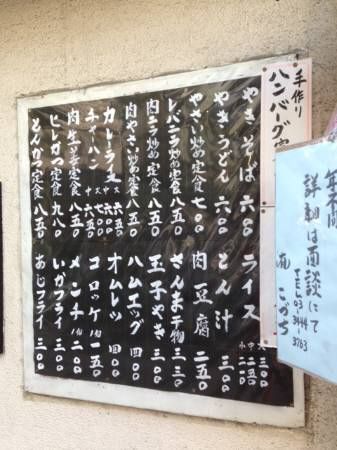 年不問
詳細は面談にて
(有) こづち
TEL 03-3444-3763
手作り
ハンバーグ定
やきそば 六〇〇
やきうどん 六〇〇
やさい炒め定食 七〇〇
レバニラ炒め定食 八五〇
肉ニラ炒め定食 八五〇
肉やさい炒め定食 八五〇
カレーライス 六五〇
チャーハン 大 七〇〇 中 六五〇
肉生姜定食 八五〇
ヒレかつ定食 九八〇
とんかつ定食 八五〇
ライス 大 三〇〇 中 二五〇 小 二一〇
とん汁
肉豆腐 二五〇
さんま干物 三三〇
玉子やき 三〇〇
ハムエッグ 四〇〇
オムレツ 四〇〇
コロッケ 一五〇
メンチ 二〇〇
いかフライ 三〇〇
あじフライ 三〇〇